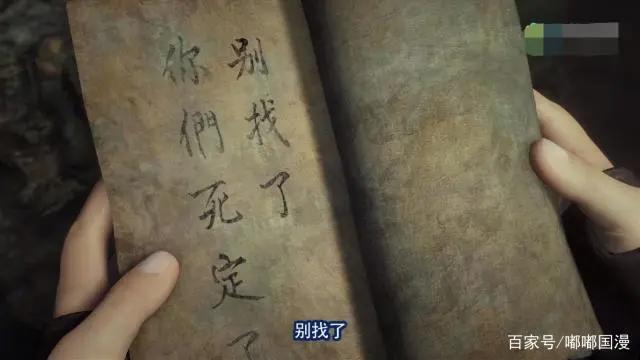 别找了
你們死定了
别找了
百家号/嘟嘟国漫